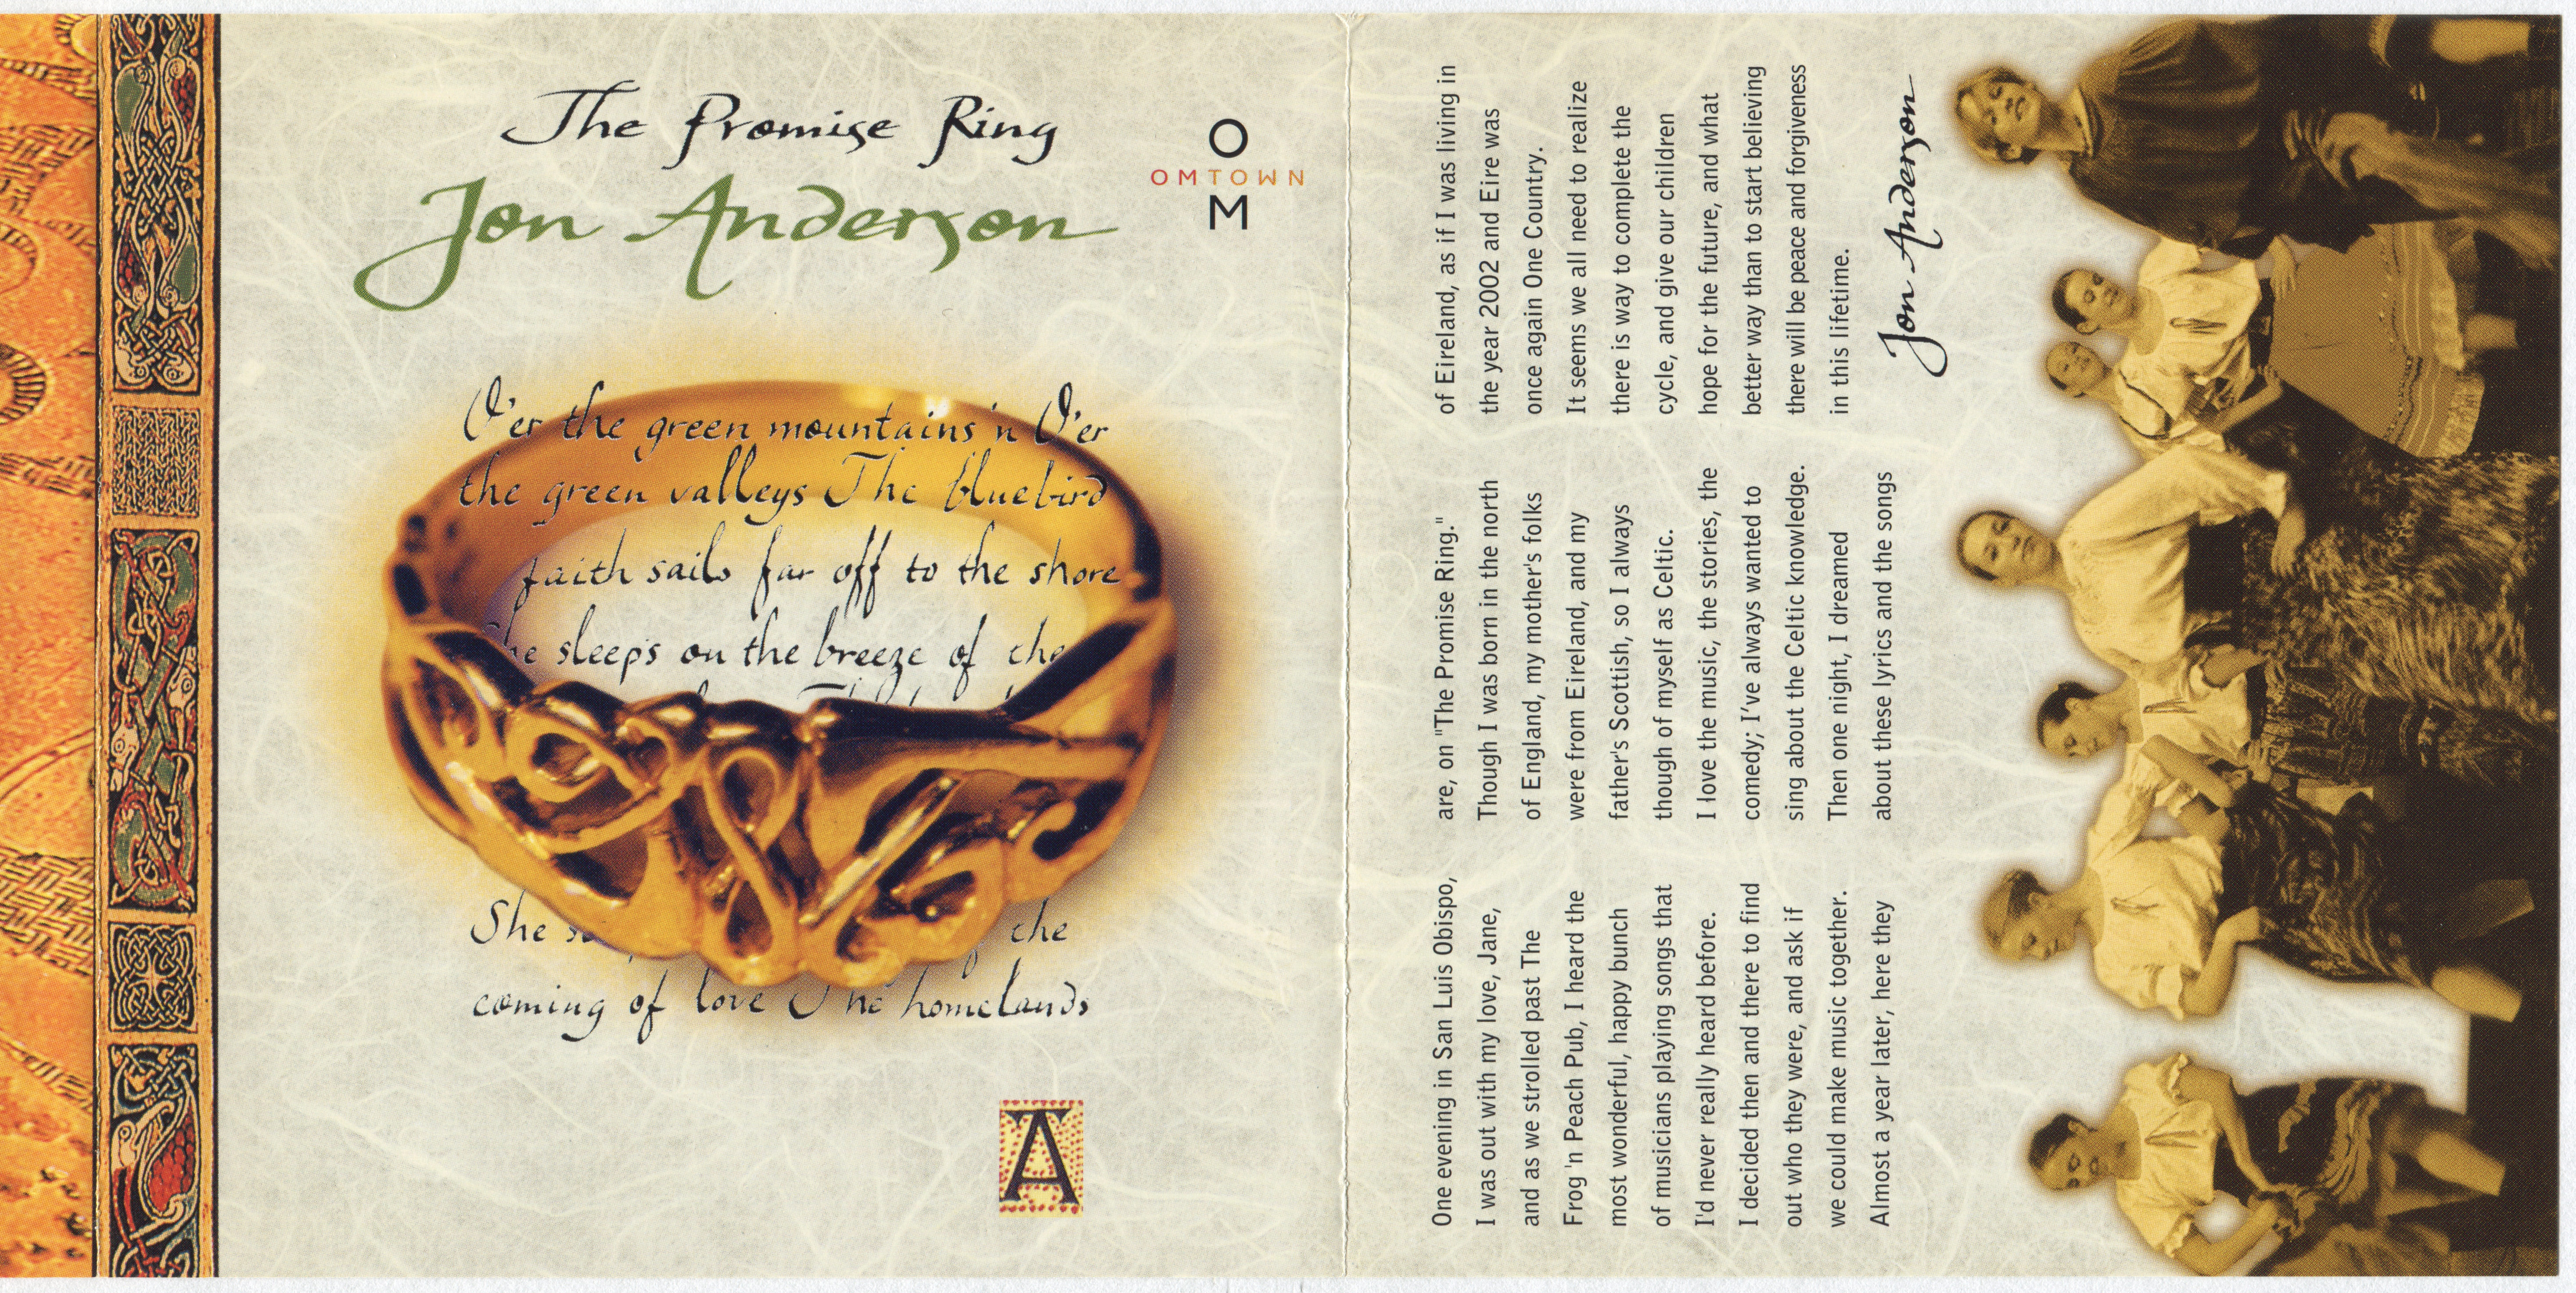 The Promise Ring
Jon Anderson
O
OMTOWN
M
O'er the green mountains 'n O'er
the green valleys The bluebird
faith sails far off to the shore
he sleeps on the breeze of the
She the
coming of love The homelands
A
One evening in San Luis Obispo,
I was out with my love, Jane,
and as we strolled past The
Frog 'n Peach Pub, I heard the
most wonderful, happy bunch
of musicians playing songs that
I'd never really heard before.
I decided then and there to find
out who they were, and ask if
we could make music together.
Almost a year later, here they
are, on "The Promise Ring."
Though I was born in the north
of England, my mother's folks
were from Eireland, and my
father's Scottish, so I always
though of myself as Celtic.
I love the music, the stories, the
comedy; I've always wanted to
sing about the Celtic knowledge.
Then one night, I dreamed
about these lyrics and the songs
of Eireland, as if I was living in
the year 2002 and Eire was
once again One Country.
It seems we all need to realize
there is way to complete the
cycle, and give our children
hope for the future, and what
better way than to start believing
there will be peace and forgiveness
in this lifetime.
Jon Anderson